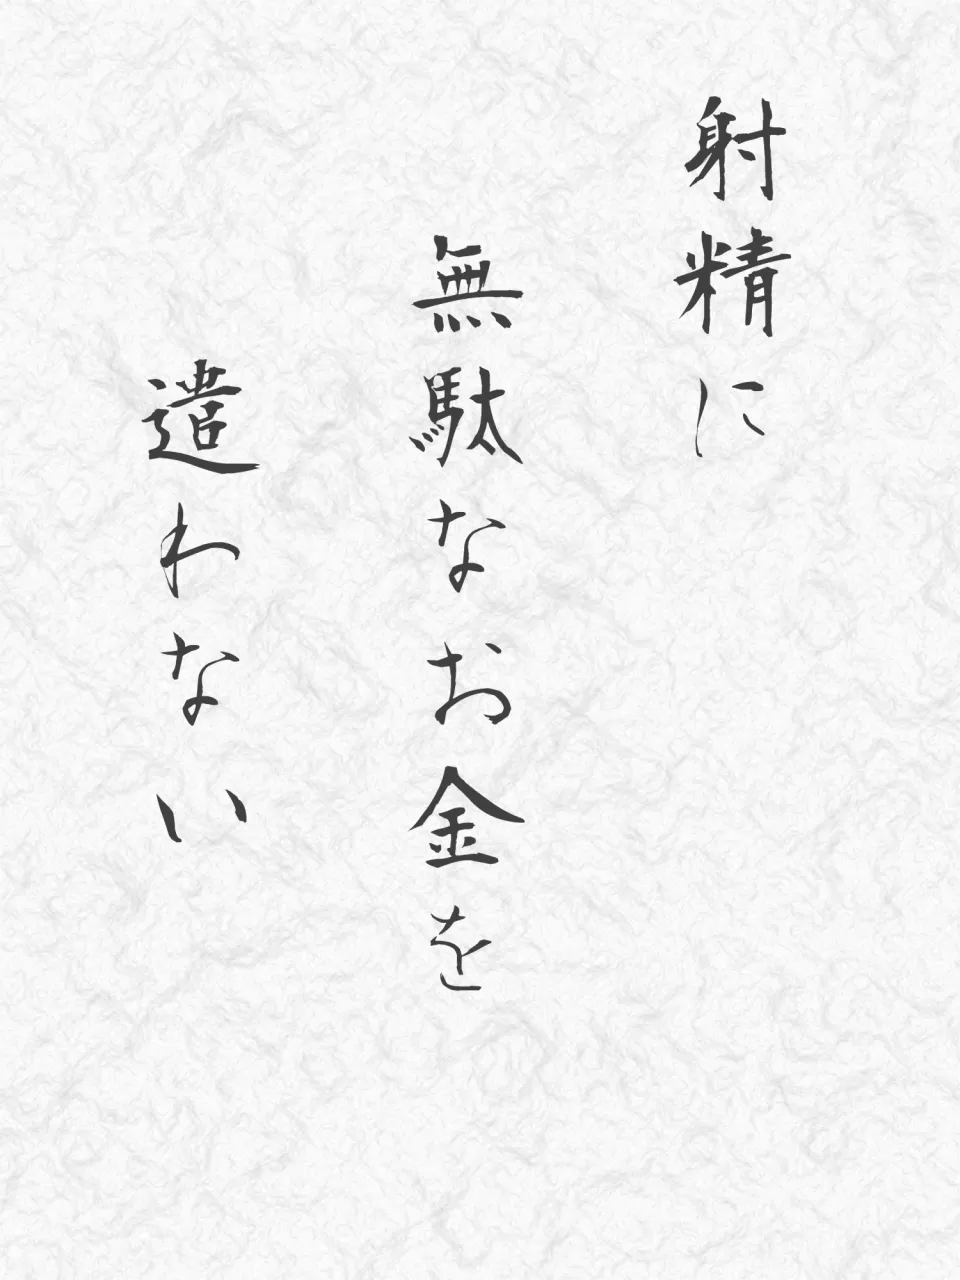 射精に
無駄なお金を
遣わない